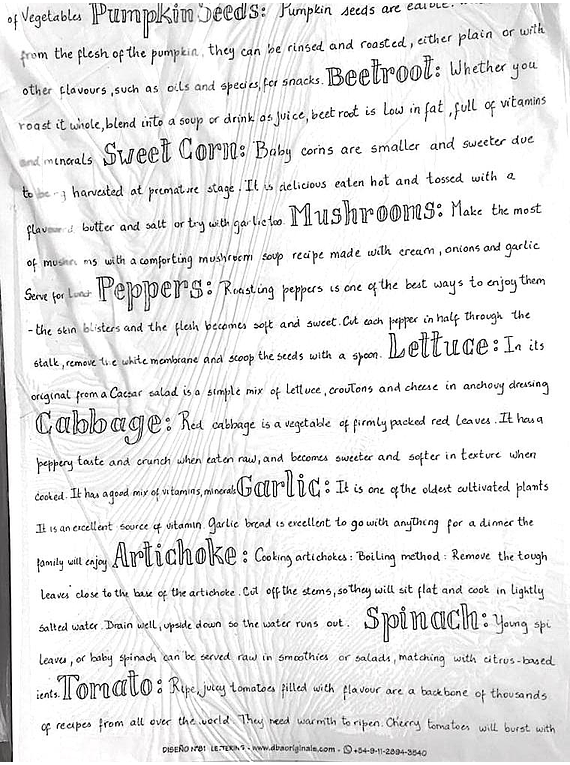 of Vegetables Pumpkin Seeds: Pumpkin seeds are
from the flesh of the pumpkin, they can be rinsed and roasted, either plain or with
other flavours, such as oils and species, for snacks. Beetroot: Whether you
roast it whole, blend into a soup or drink as juice, beetroot is low in fat, full of vitamins
and minerals Sweet Corn: Baby corns are smaller and sweeter due
to being harvested at premature stage. It is delicious eaten hot and tossed with a
flavoured butter and salt or try with garlic too. Mushrooms: Make the most
of mushrooms with a comforting mushroom soup recipe made with cream, onions and garlic
Serve for Lunch Peppers: Roasting peppers is one of the best ways to enjoy them
- the skin blisters and the flesh becomes soft and sweet. Cut each pepper in half through the
stalk, remove the white membrane and scoop the seeds with a spoon. Lettuce: In its
original from a Caesar salad is a simple mix of lettuce, croutons and cheese in anchovy dressing
Cabbage: Red cabbage is a vegetable of firmly packed red leaves. It has a
peppery taste and crunch when eaten raw, and becomes sweeter and softer in texture when
cooked. It has a good mix of vitamins, minerals Garlic: It is one of the oldest cultivated plants
It is an excellent source of vitamin. Garlic bread is excellent to go with anything for a dinner the
family will enjoy Artichoke: Cooking artichokes: Boiling method: Remove the tough
leaves close to the base of the artichoke. Cut off the stems, so they will sit flat and cook in lightly
salted water. Drain well, upside down so the water runs out. Spinach: Young spi
leaves, or baby spinach can be served raw in smoothies or salads, matching with citrus-based
ients. Tomato: Ripe, juicy tomatoes filled with flavour are a backbone of thousands
of recipes from all over the world. They need warmth to ripen. Cherry tomatoes will burst with
DISEÑO N°81 LETTERING - www.dbaoriginals.com - +54-9-11-2894-3540